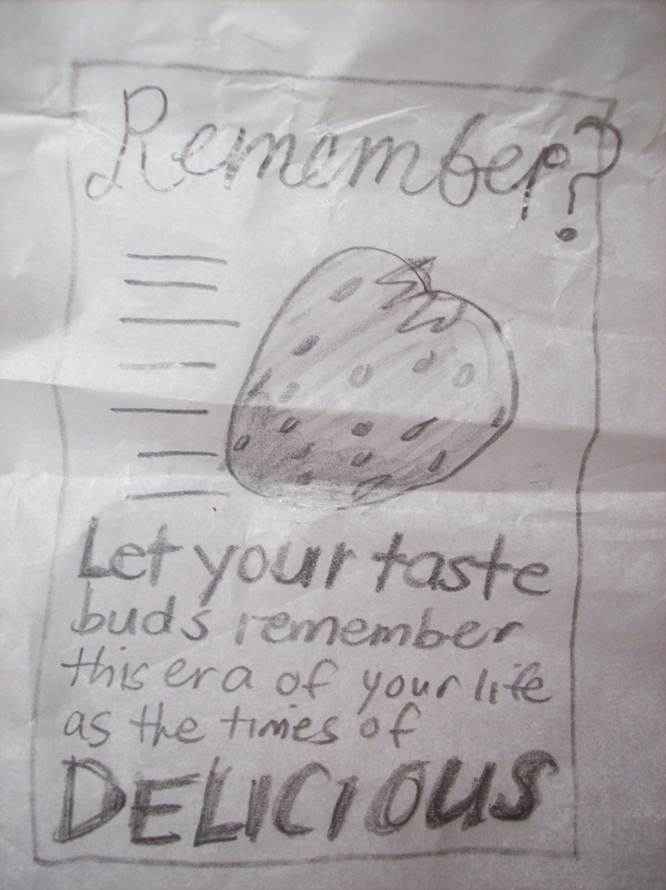 Remember?
Let your taste
buds remember
this era of your life
as the times of
DELICIOUS